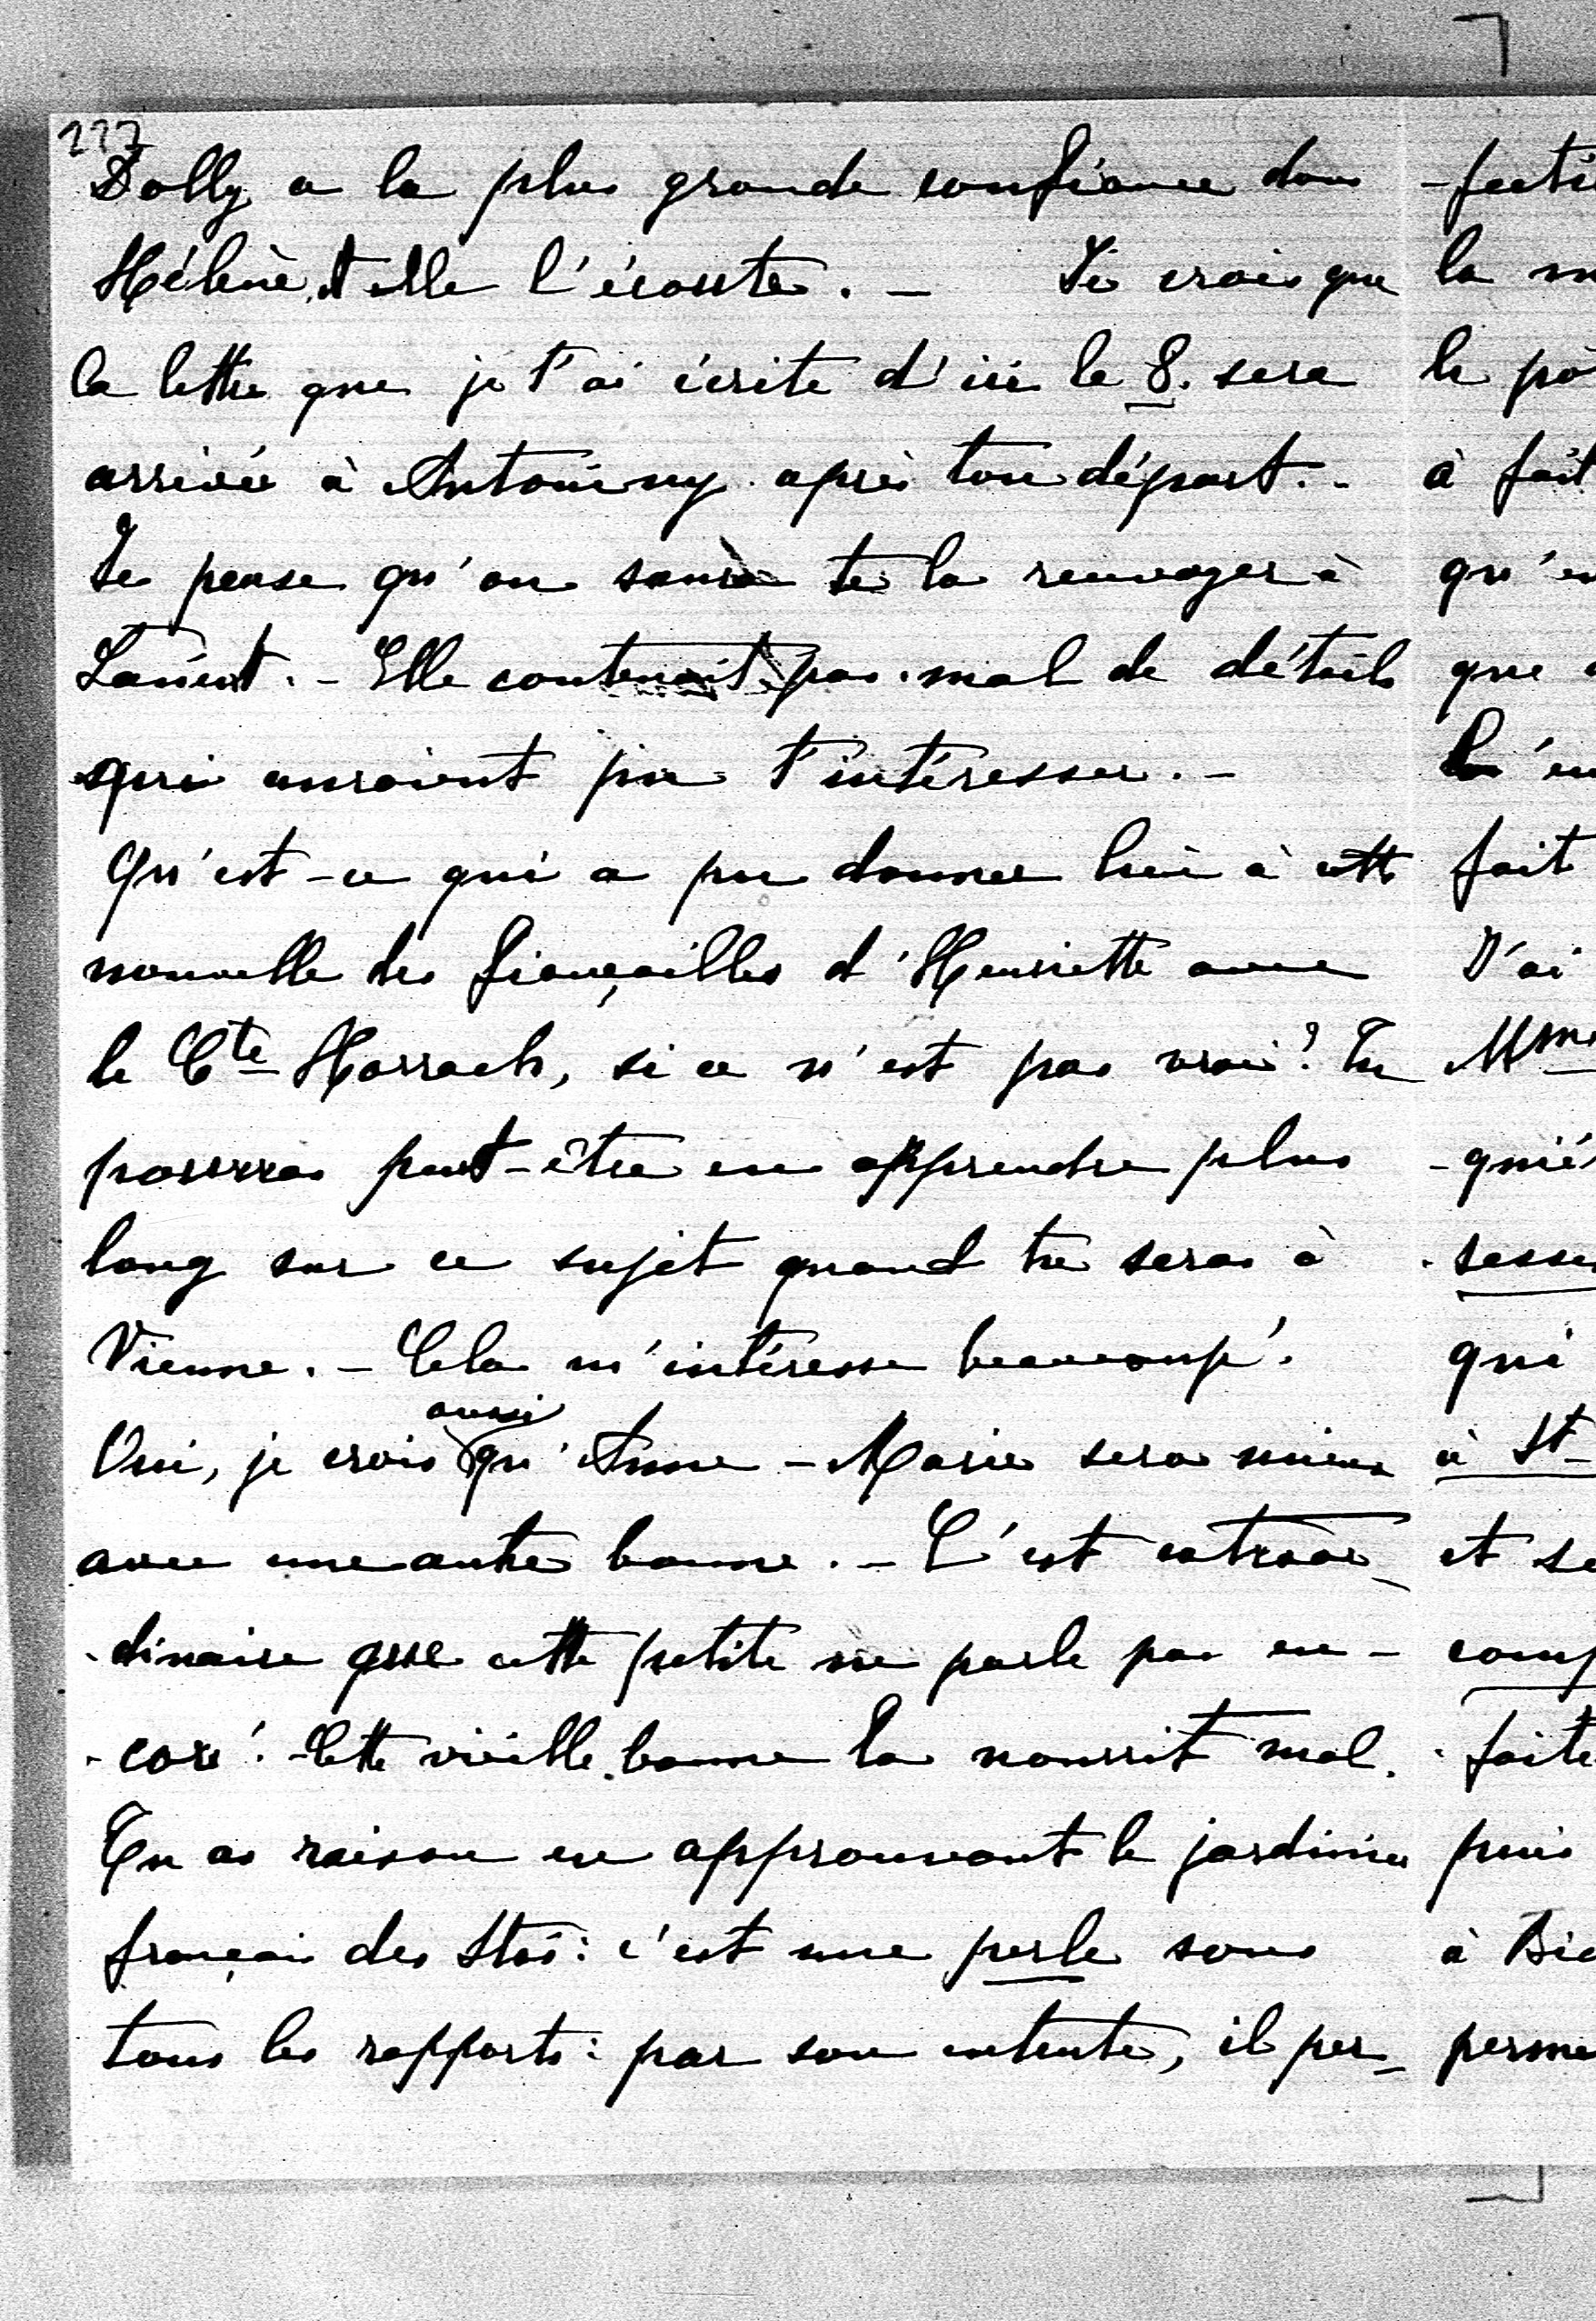 227
Dolly a la plus grande confiance dans
Hélène, et elle l'écoute. – Je crois que
la lettre que je t'ai écrite d'ici le 8. sera
arrivée à Antoniny après ton départ. -
Je pense qu'on saura te la renvoyer à
Lancut. - Elle contenait pas mal de détails
qui auraient pu t'intéresser. –
Qu'est-ce qui a pu donner lieu à cette
nouvelle des fiançailles d'Henriette avec
le Cte Harrach, si ce n'est pas vrai? Tu
pourras peut-être en apprendre plus
long sur ce sujet quand tu seras à
Vienne. – Cela m'intéresse beaucoup!
aussi
Oui, je crois qu'Anne-Marie sera mieux
avec une autre bonne. – C'est extraor-
-dinaire que cette petite ne parle pas en-
-core! - Cette vieille bonne la nourrit mal.
Tu as raison en approuvant le jardinier
français des Stas: c'est une perle sous
tous les rapports: par son entente, il per-
-fecti
la m
le
à fait
qu'en
que
fait
J'ai
Mme
-quié
-sesse
qui
à St-
et se
comp
-faite
puis
à Bia
perme